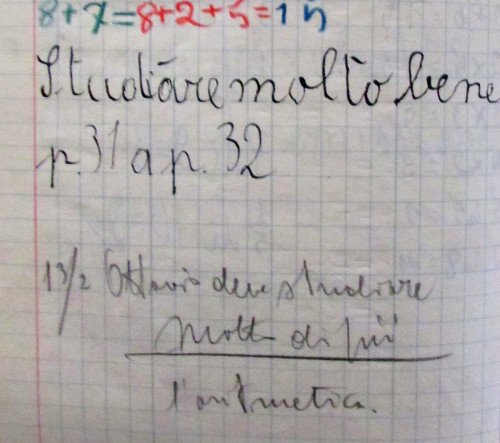 8+7=8+2+5=15
Studiare molto bene
p.31 a p.32
13/2 Ottavio deve studiare
molto di più
l'aritmetica.